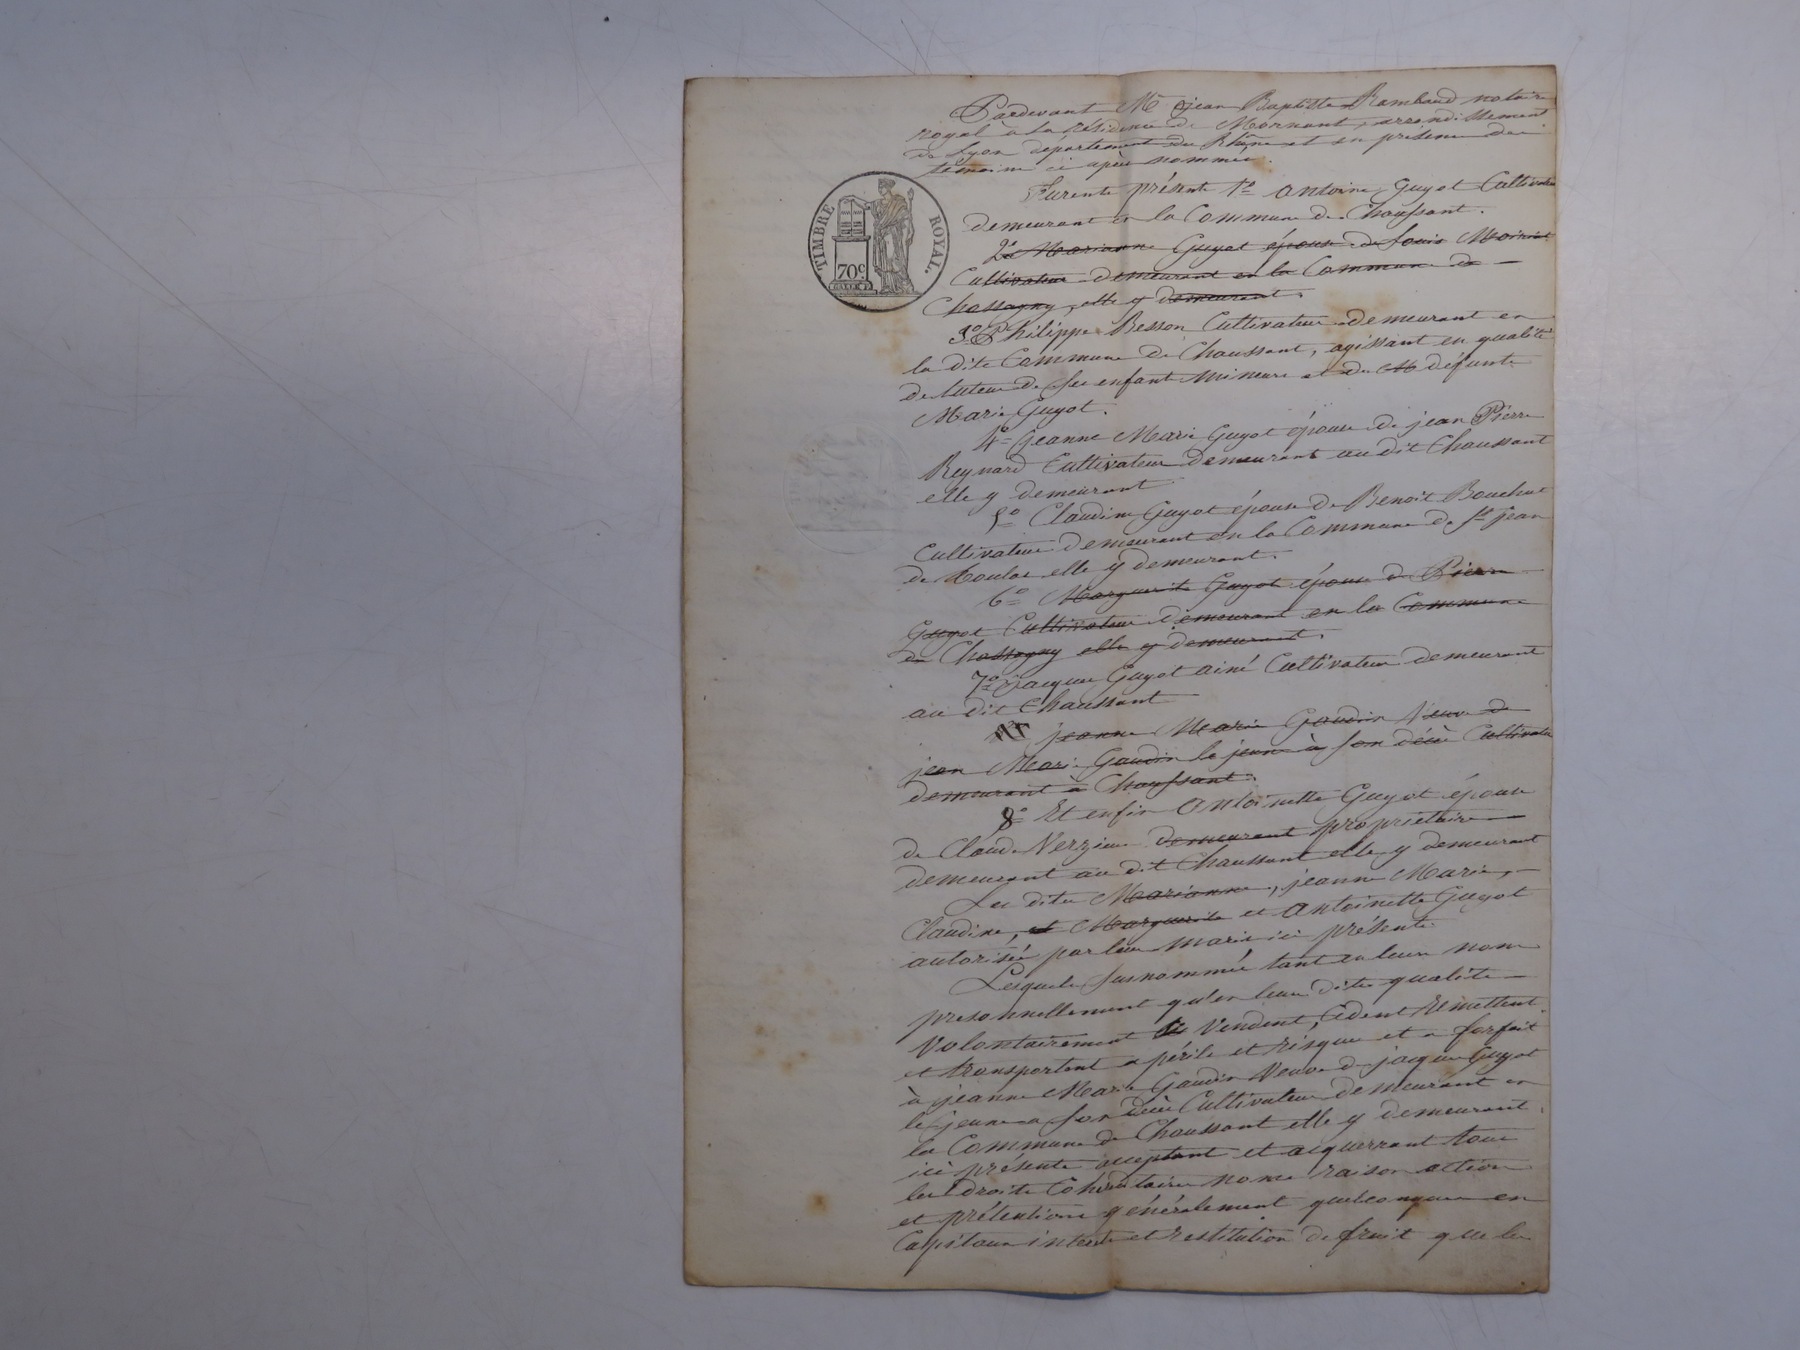 Pardevant Me jean Baptiste Rambaud notaire
royal à la résidence de Mornant, arrondissement
de Lyon département du Rhône et en présence des
témoins ci après nommés.
TIMBRE ROYAL.
70c
Furents présents 1o Antoine Guyot Cultivateur
demeurant en la Commune de Chaussant.
2o Marianne Guyot épouse de Louis
Cultivateur demeurant en la Commune de
Chassagny, elle y demeurant.
3o Philippe Besson Cultivateur demeurant en
la dite Commune de Chaussant, agissant en qualité
de tuteur de ses enfant mineurs et de défunte
Marie Guyot.
4o Jeanne Marie Guyot épouse de jean Pierre
Reynard Cultivateur demeurant au dit Chaussant
elle y demeurant
5o Claudine Guyot épouse de Benoit Bouchut
Cultivateur demeurant en la Commune de St jean
de Toulas elle y demeurant.
6o Marguerite Guyot épouse de Pierre
Guyot Cultivateur demeurant en la Commune
de Chassagny elle y demeurant.
7o jacques Guyot ainé Cultivateur demeurant
au dit Chaussant
jeanne Marie Gaudin Veuve de
jean Marie Gaudin le jeune à son décès Cultivateur
demeurant à Chaussant.
8o Et enfin Antoinette Guyot épouse
de Claude Verzieux demeurant propriétaire
demeurant au dit Chaussant elle y demeurant
Les dites Marianne, jeanne Marie,
Claudine, et Marguerite et Antoinette Guyot
autorisées par leurs maris ici présents
Lesquels susnommés tant en leurs noms
presonnellement qu'en leurs dites qualités
Volontairement Vendent, Cèdent Remettent
et transportent a périls et risques et a forfait
à jeanne Marie Gaudin Veuve de jacques Guyot
le jeune a son décès Cultivateur demeurant en
la Commune de Chaussant elle y demeurant.
ici présente acceptant et acquerrant tous
les droits Cohéréditaires noms raisons actions
et prétentions généralement quelconques en
Capitaux intérêts et restitution de fruits que les